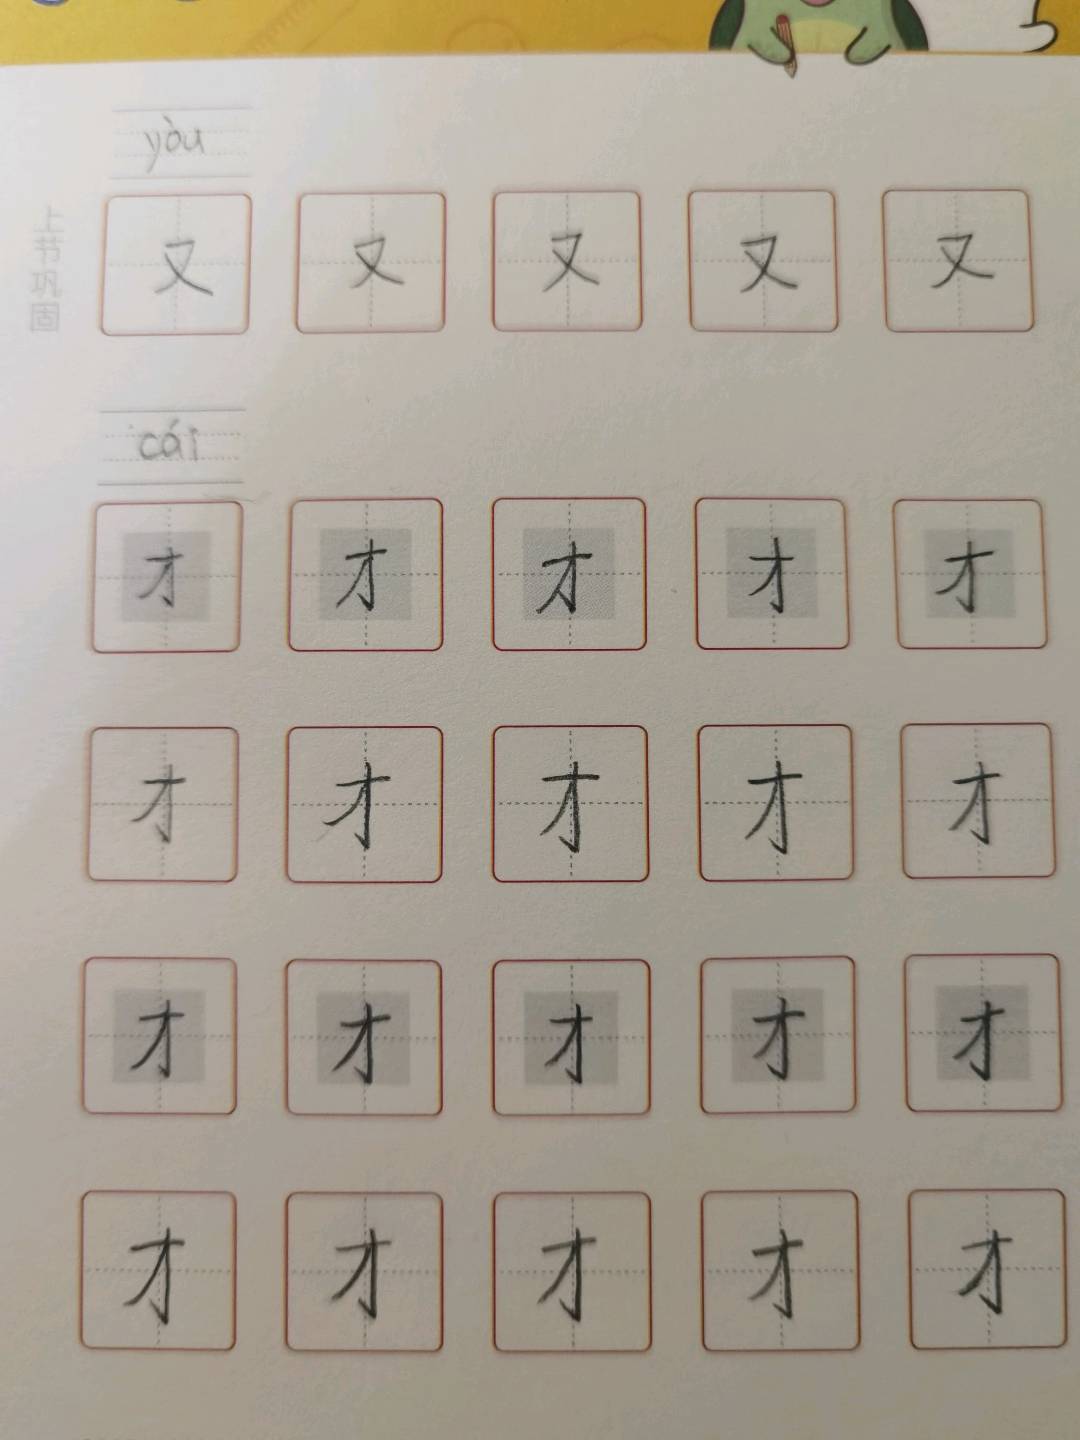 yòu
上节巩固
又 又 又 又 又
cái
才 才 才 才 才
才 才 才 才 才
才 才 才 才 才
才 才 才 才 才